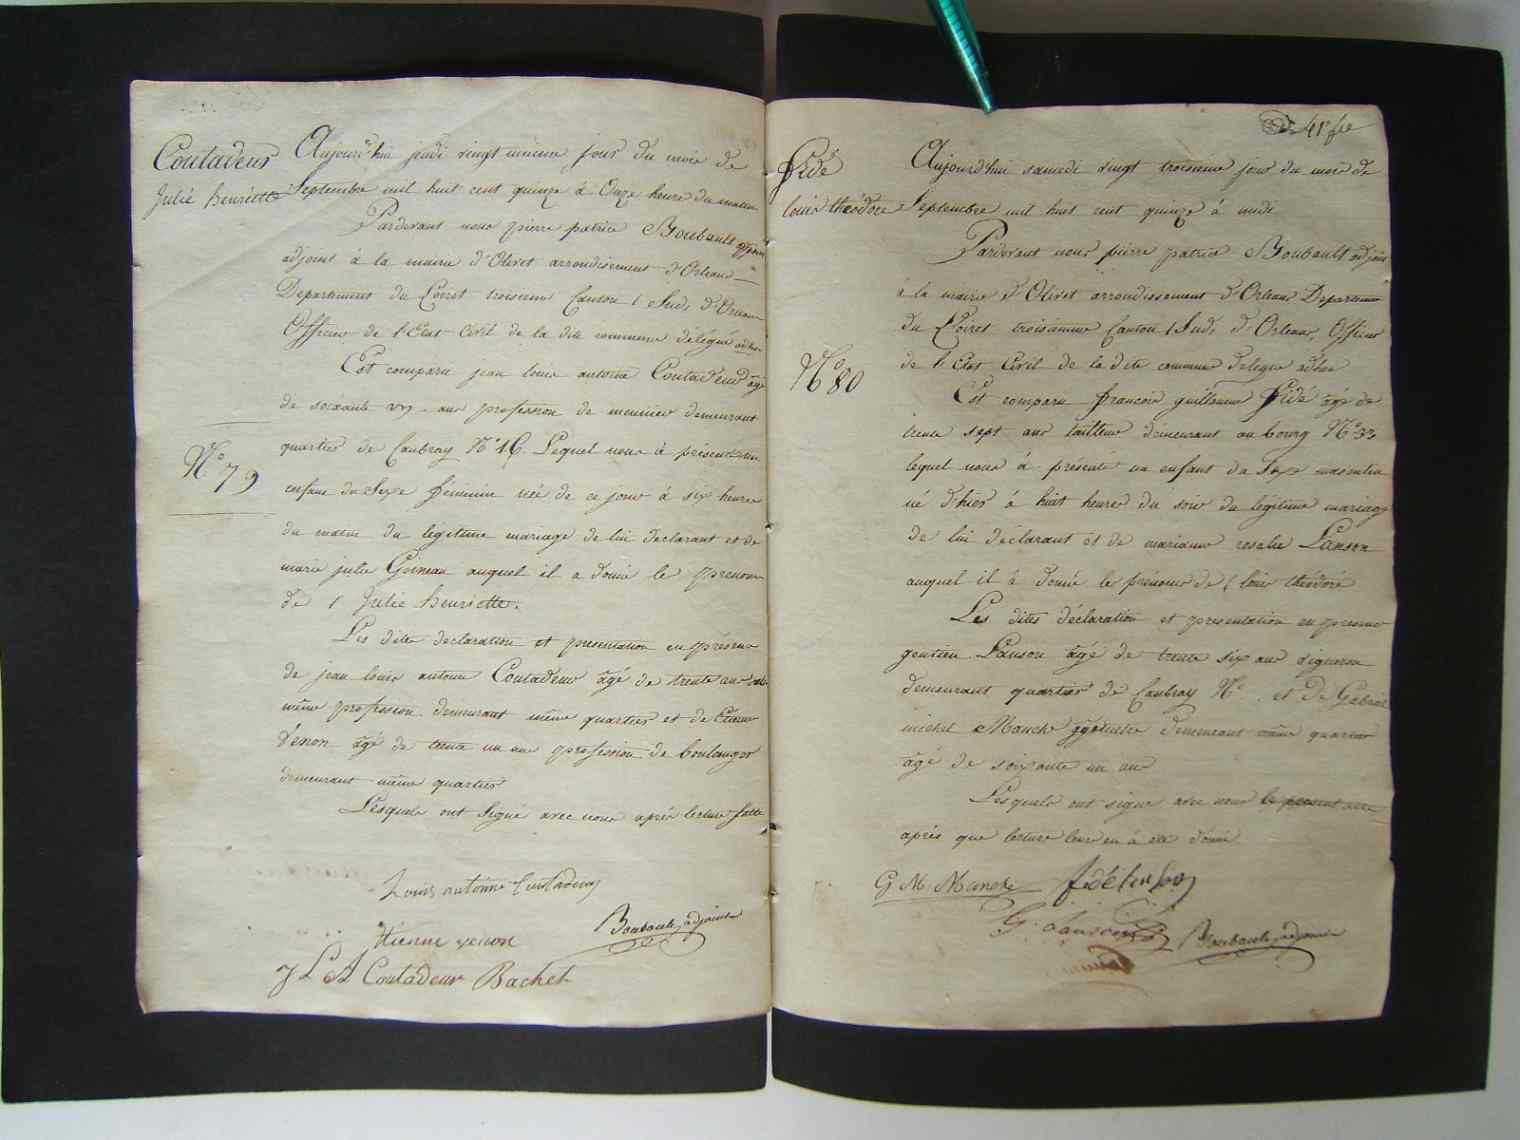 Coutadeur
Julie henriette
Aujourd'hui jeudi vingt unieme jour du mois de
Septembre mil huit cent quinze à Onze heure du matin
Pardevant nous pierre patrice Boubault
adjoint à la mairie d'Olivet arrondissement d'Orleans
Departement du Loiret troisieme Canton (Sud) d'Orleans
Officier de l'Etat Civil de la dite commune délégué adhoc
Est comparu jean louis antoine Coutadeur âgé
de soixante ans profession de meunier demeurant
quartier de Caubray N° 16. Lequel nous à présenté un
N° 79
enfant du Sexe féminin née de ce jour à six heure
du matin du légitime mariage de lui declarant et de
marie julie Goineau auquel il a donné le prenom
de ( Julie henriette.
Les dites declaration et presentation en présence
de jean louis antoine Coutadeur âgé de trente ans
même profession demeurant même quartier et de Etienne
Venon âgé de trente un ans profession de boulanger
demeurant même quartier
Lesquels ont Signé avec nous après lecture faitte
Louis antoine Coutadeur
Boubault adjoint
Etienne venon
J L A Coutadeur Bachet
41e
fidé
louis théodore
Aujourd'hui samedi vingt troisieme jour du mois de
Septembre mil huit cent quinze à midi
Pardevant nous pierre patrice Boubault adjoint
à la mairie d'Olivet arrondissement d'Orleans Departement
du Loiret troisieme Canton (Sud) d'Orleans, Officier
de l'Etat Civil de la dite commune delegué adhoc
N° 80
Est comparu francois guillaume fidé âgé de
trente sept ans tailleur demeurant au bourg N° 33
lequel nous à présenté un enfant du Sexe masculin
né d'hier à huit heure du soir du légitime mariage
de lui déclarant et de marianne rosalie Lanson
auquel il à donné les prénoms de ( louis théodore
Les dites déclaration et presentation en presence
gentien Lanson âgé de trente six ans vigneron
demeurant quartier de Caubray N° et de Gabriel
michel Manck demeurant même quartier
âgé de soixante un ans
Lesquels ont signé avec nous le present acte
après que lecture leur en à été donné
G. M. Manck
G. Lanson
Boubault adjoint